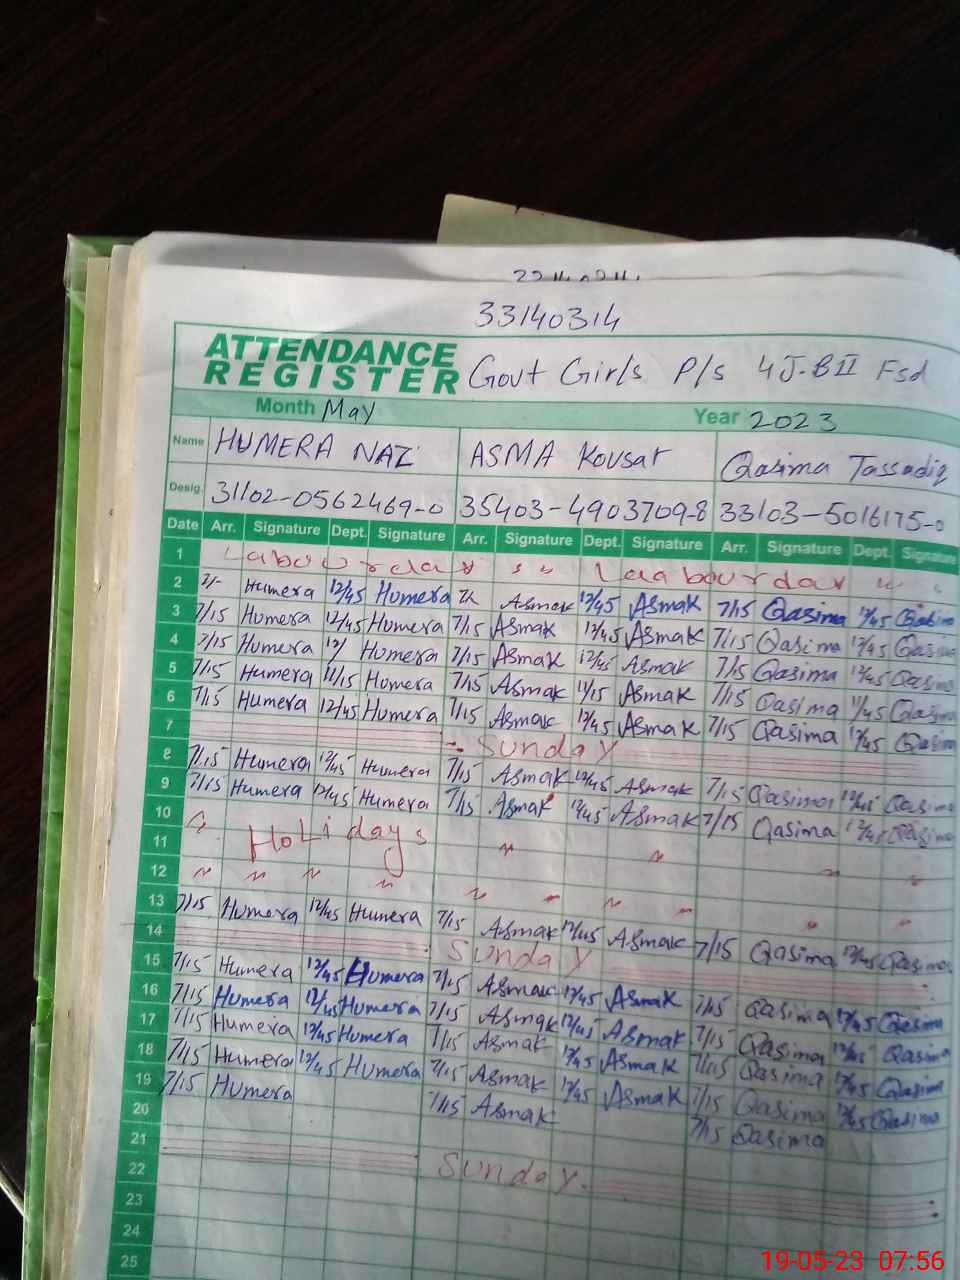 33140314
ATTENDANCE REGISTER Govt Girls P/s 4 J-B II Fsd
Month May Year 2023
Name HUMERA NAZ ASMA Kousar Qasima Tassadiq
Desig. 31102-0562469-0 35403-4903709-8 33103-5016175-0
Date Arr. Signature Dept. Signature Arr. Signature Dept. Signature Arr. Signature Dept. Signature
1 Labour day " " Laabour day "
2 Humera 12/45 Humera Asmak 12/45 Asmak 7/15 Qasima 12/45 Qasima
3 7/15 Humera 12/45 Humera 7/15 Asmak 12/45 Asmak 7/15 Qasima 12/45 Qasima
4 7/15 Humera 12/ Humera 7/15 Asmak 12/45 Asmak 7/15 Qasima 12/45 Qasima
5 7/15 Humera 11/15 Humera 7/15 Asmak 11/15 Asmak 7/15 Qasima 11/45 Qasima
6 7/15 Humera 12/45 Humera 7/15 Asmak 12/45 Asmak 7/15 Qasima 12/45 Qasima
7 Sunday
8 7/15 Humera 12/45 Humera 7/15 Asmak 12/45 Asmak 7/15 Qasima 12/45 Qasima
9 7/15 Humera 12/45 Humera 7/15 Asmak 12/45 Asmak 7/15 Qasima 12/45 Qasima
10
11 Holidays " "
12 " " " " " " " " " "
13 7/15 Humera 12/45 Humera 7/15 Asmak 12/45 Asmak 7/15 Qasima 12/45 Qasima
14 Sunday
15 7/15 Humera 12/45 Humera 7/15 Asmak 12/45 Asmak 7/15 Qasima 12/45 Qasima
16 7/15 Humera 12/45 Humera 7/15 Asmak 12/45 Asmak 7/15 Qasima 12/45 Qasima
17 7/15 Humera 12/45 Humera 7/15 Asmak 12/45 Asmak 7/15 Qasima 12/45 Qasima
18 7/15 Humera 12/45 Humera 7/15 Asmak 12/45 Asmak 7/15 Qasima 12/45 Qasima
19 7/15 Humera 7/15 Asmak 7/15 Qasima
20
21 Sunday.
22
23
24
25
19-05-23 07:56